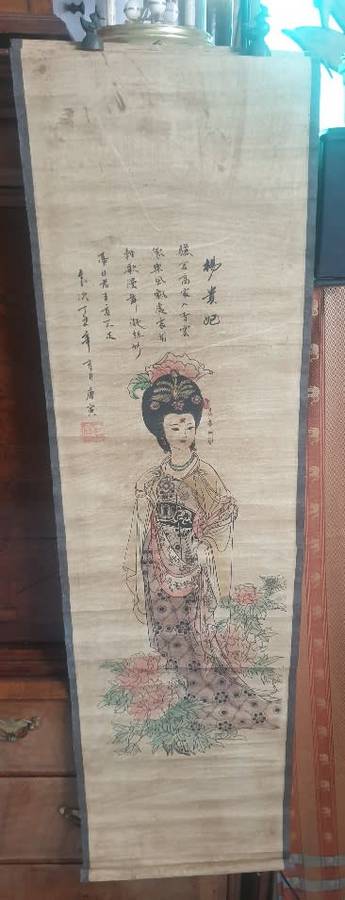 楊貴妃
驪宮高處入青雲
仙樂風飄處處聞
歌慢舞凝絲竹
盡日君王看不足
歲次丁年 唐寅